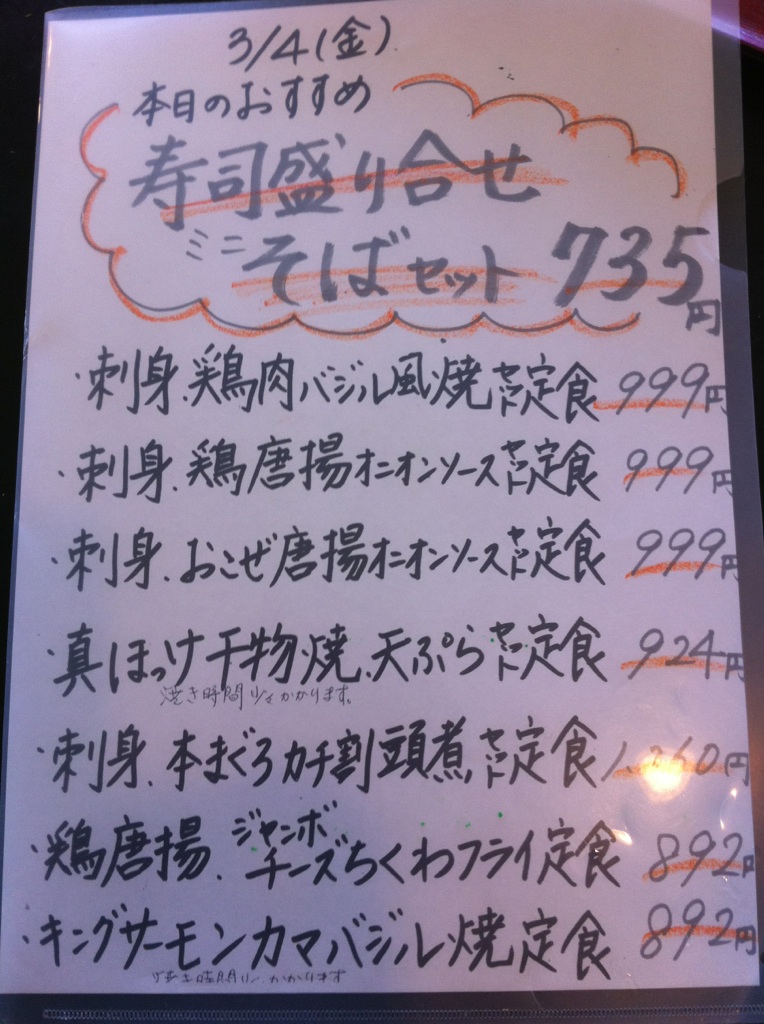 3/4(金)
本日のおすすめ
寿司盛り合せ
ミニそばセット 735円
・刺身、鶏肉バジル風焼セット定食 999円
・刺身、鶏唐揚オニオンソースセット定食 999円
・刺身、おこぜ唐揚オニオンソースセット定食 999円
・真ほっけ干物焼、天ぷらセット定食 924円
焼き時間少々かかります。
・刺身、本まぐろカチ割頭煮セット定食 円
・鶏唐揚、ジャンボチーズちくわフライ定食 892円
・キングサーモンカマバジル焼定食 892円
焼き時間少々かかります